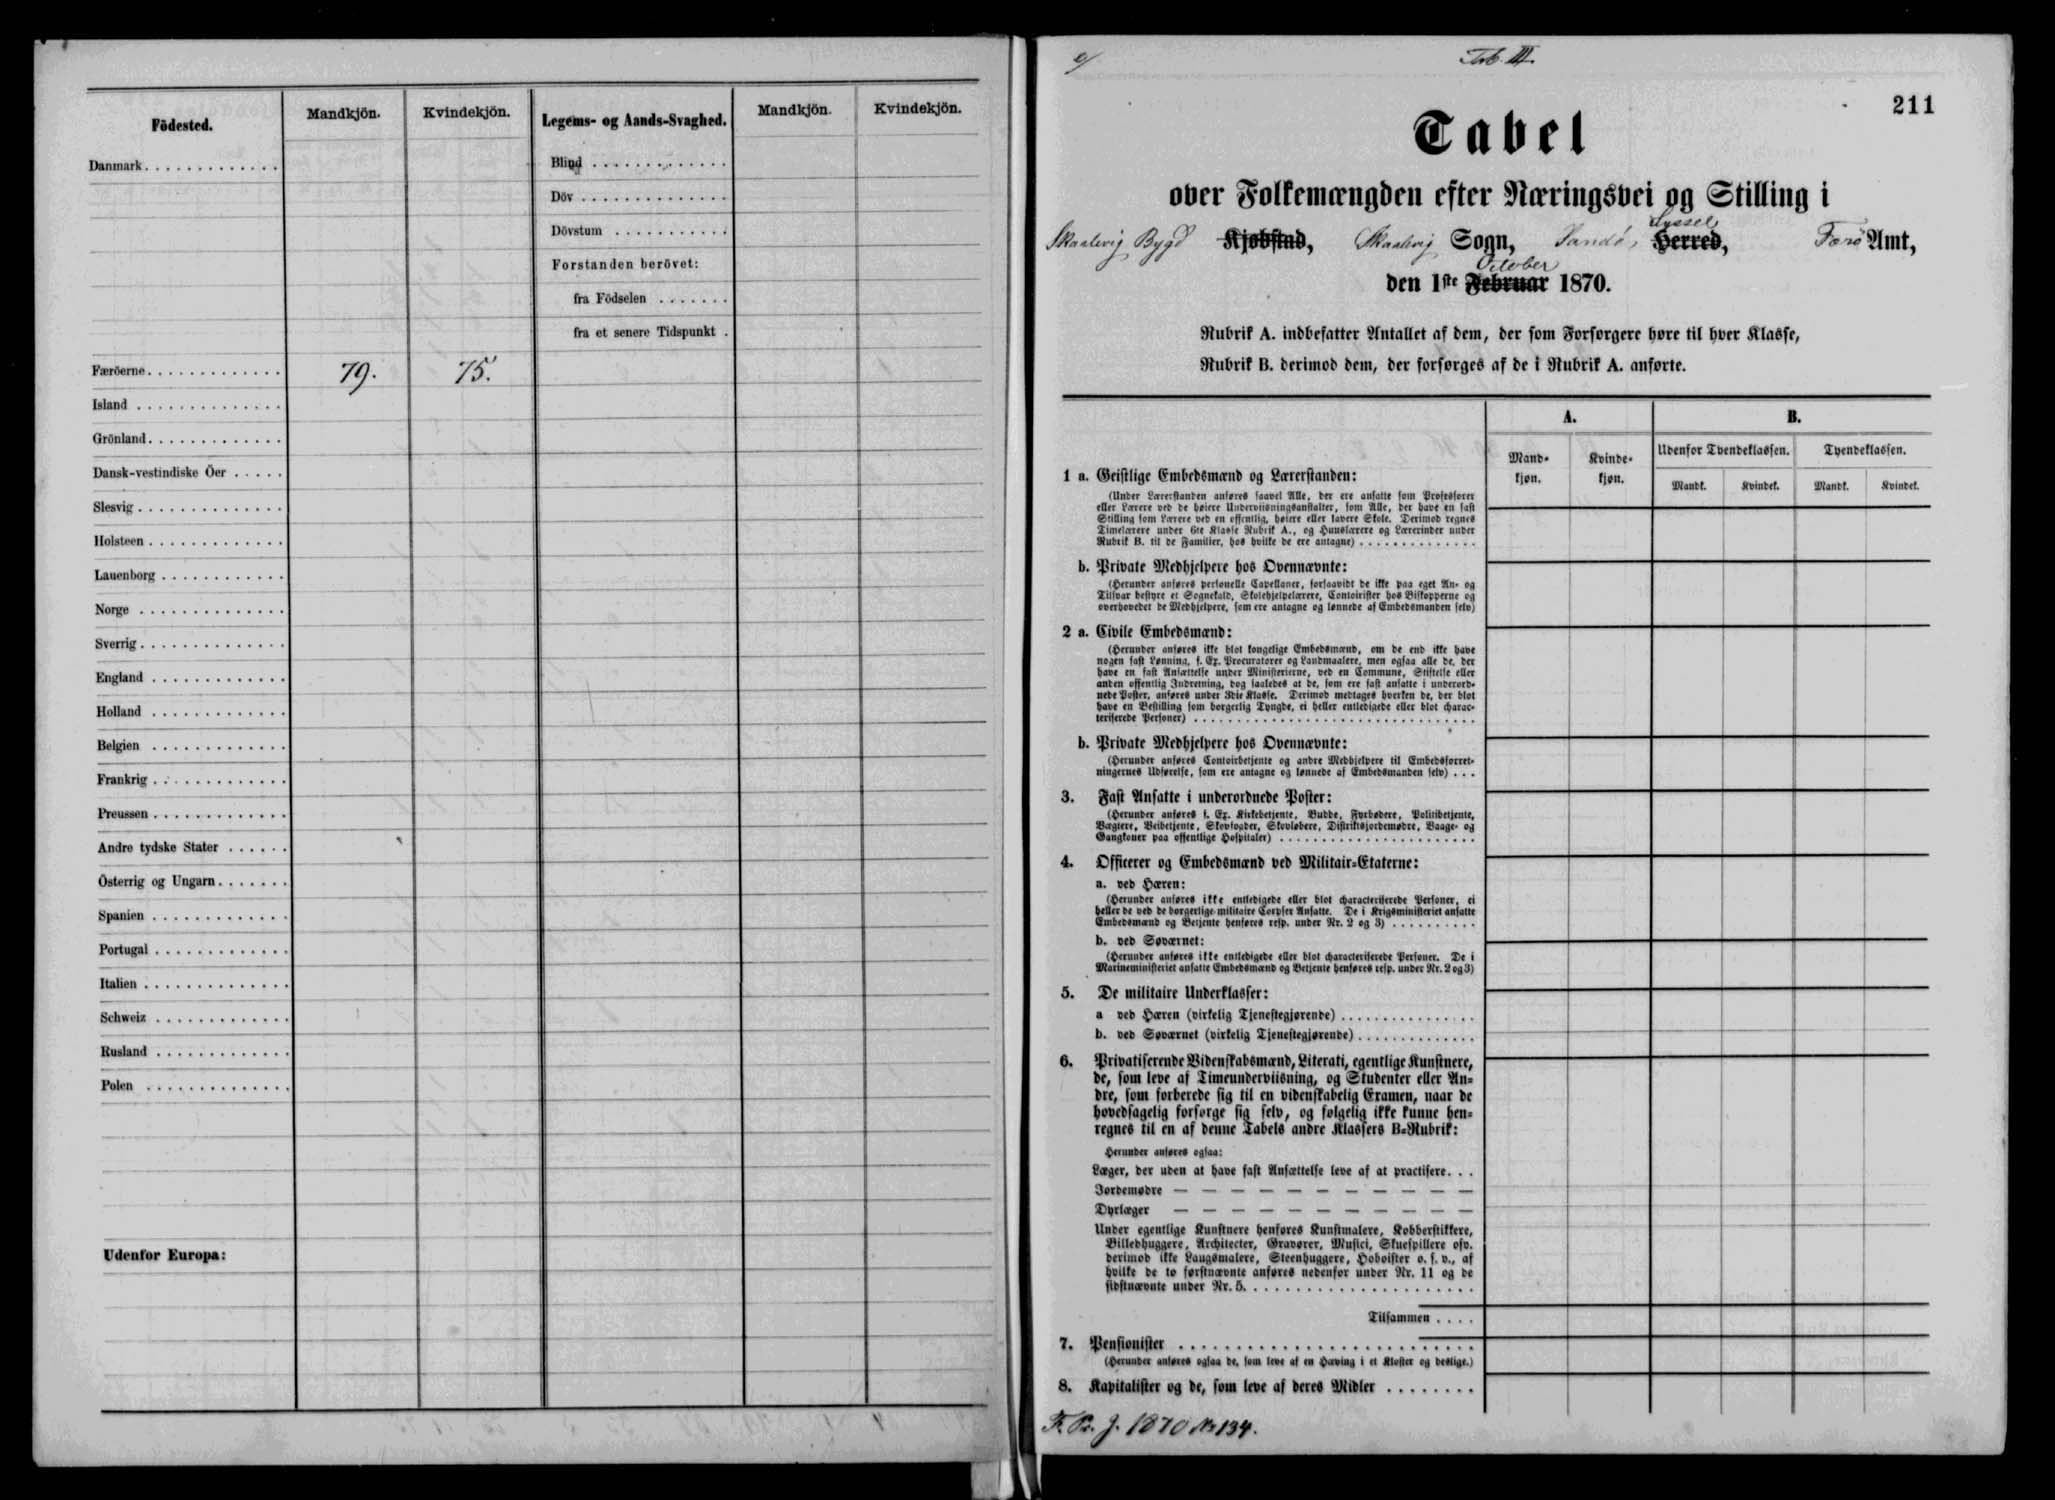 Födested.
Mandkjön.
Kvindekjön.
Legems- og Aands-Svaghed.
Mandkjön.
Kvindekjön.
Danmark
Blind
Döv
Dövstum
Forstanden berövet:
fra Födselen
fra et senere Tidspunkt
Færöerne 79. 75.
Island
Grönland
Dansk-vestindiske Öer
Slesvig
Holsteen
Lauenborg
Norge
Sverrig
England
Holland
Belgien
Frankrig
Preussen
Andre tydske Stater
Österrig og Ungarn
Spanien
Portugal
Italien
Schweiz
Rusland
Polen
Udenfor Europa:
Tab. III.
211
Tabel
over Folkemængden efter Næringsvei og Stilling i
Syssel
Skaalevig Bygd Kjøbstad, Skaalevig Sogn, Sandö, Herred, Færö Amt,
October
den 1ste Februar 1870.
Rubrik A. indbefatter Antallet af dem, der som Forsørgere høre til hver Klasse,
Rubrik B. derimod dem, der forsørges af de i Rubrik A. anførte.
A.
B.
Mand-
kjøn.
Kvinde-
kjøn.
Udenfor Tyendeklassen.
Tyendeklassen.
Mandk.
Kvindek.
Mandk.
Kvindek.
1 a. Geistlige Embedsmænd og Lærerstanden:
(Under Lærerstanden anføres saavel Alle, der ere ansatte som Professorer
eller Lærere ved de høiere Underviisningsanstalter, som Alle, der have en fast
Stilling som Lærere ved en offentlig, høiere eller lavere Skole. Derimod regnes
Timelærere under 6te Klasse Rubrik A., og Huuslærere og Lærerinder under
Rubrik B. til de Familier, hos hvilke de ere antagne)
b. Private Medhjelpere hos Ovennævnte:
(Herunder anføres personelle Capellaner, forsaavidt de ikke paa eget An- og
Tilsvar bestyre et Sognekald, Skolehjelpelærere, Contoirister hos Biskopperne og
overhovedet de Medhjelpere, som ere antagne og lønnede af Embedsmanden selv)
2 a. Civile Embedsmænd:
(Herunder anføres ikke blot kongelige Embedsmænd, om de end ikke have
nogen fast Lønning, f. Ex. Procuratorer og Landmaalere, men ogsaa alle de, der
have en fast Ansættelse under Ministerierne, ved en Commune, Stiftelse eller
anden offentlig Indretning, dog saaledes at de, som ere fast ansatte i underord-
nede Poster, anføres under 3die Klasse. Derimod medtages hverken de, der blot
have en Bestilling som borgerlig Tyngde, ei heller entledigede eller blot charac-
teriserede Personer)
b. Private Medhjelpere hos Ovennævnte:
(Herunder anføres Contoirbetjente og andre Medhjelpere til Embedsforret-
ningernes Udførelse, som ere antagne og lønnede af Embedsmanden selv)
3. Fast Ansatte i underordnede Poster:
(Herunder anføres f. Ex. Kirkebetjente, Budde, Fyrbødere, Politibetjente,
Vægtere, Veibetjente, Skovfogder, Skovløbere, Distriktsjordemødre, Vaage- og
Gangkoner paa offentlige Hospitaler)
4. Officerer og Embedsmænd ved Militair-Etaterne:
a. ved Hæren:
(Herunder anføres ikke entledigede eller blot characteriserede Personer, ei
heller de ved de borgerlige militaire Corpser Ansatte. De i Krigsministeriet ansatte
Embedsmænd og Betjente henføres resp. under Nr. 2 og 3)
b. ved Søværnet:
(Herunder anføres ikke entledigede eller blot characteriserede Personer. De i
Marineministeriet ansatte Embedsmænd og Betjente henføres resp. under Nr. 2 og 3)
5. De militaire Underklasser:
a ved Hæren (virkelig Tjenestegjørende)
b. ved Søværnet (virkelig Tjenestegjørende)
6. Privatiserende Videnskabsmænd, Literati, egentlige Kunstnere,
de, som leve af Timeunderviisning, og Studenter eller An-
dre, som forberede sig til en videnskabelig Examen, naar de
hovedsagelig forsørge sig selv, og følgelig ikke kunne hen-
regnes til en af denne Tabels andre Klassers B-Rubrik:
Herunder anføres ogsaa:
Læger, der uden at have fast Ansættelse leve af at practisere
Jordemødre — — — — — — — — — — —
Dyrlæger — — — — — — — — — — —
Under egentlige Kunstnere henføres Kunstmalere, Kobberstikkere,
Billedhuggere, Architecter, Gravører, Musici, Skuespillere osv.
derimod ikke Laugsmalere, Steenhuggere, Hoboister o. s. v., af
hvilke de to førstnævnte anføres nedenfor under Nr. 11 og de
sidstnævnte under Nr. 5.
Tilsammen
7. Pensionister
(Herunder anføres ogsaa de, som leve af en Hæving i et Kloster og deslige.)
8. Kapitalister og de, som leve af deres Midler
F. Pr. J. 1870 No 134.